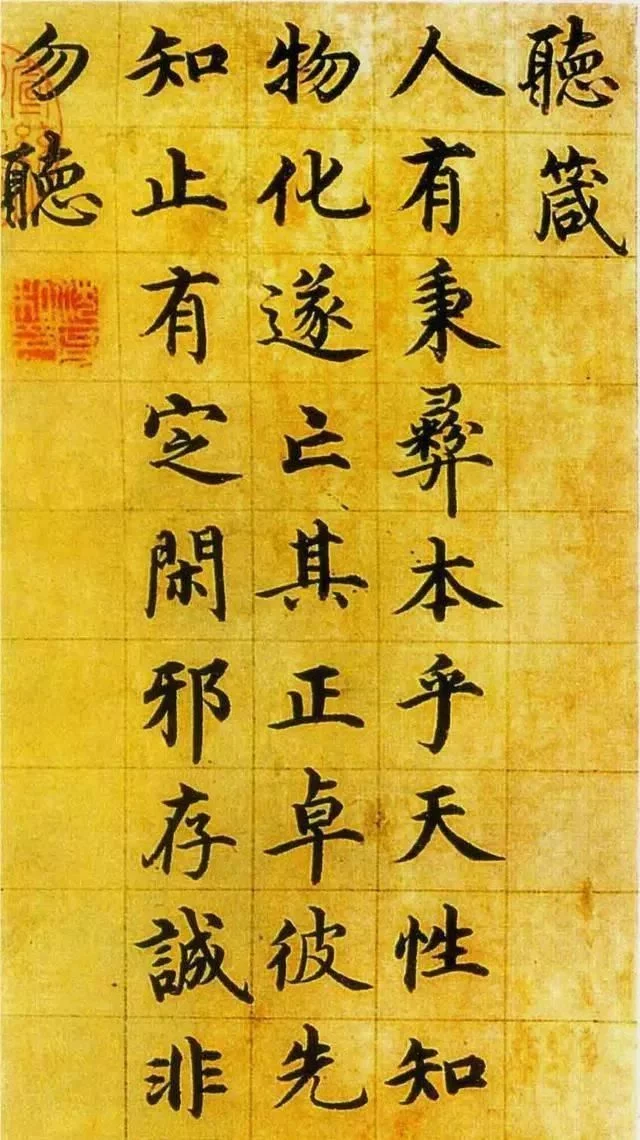 聽箴
人有秉彝本乎天性知
物化遂亡其正卓彼先
知止有定閑邪存誠非
勿聽